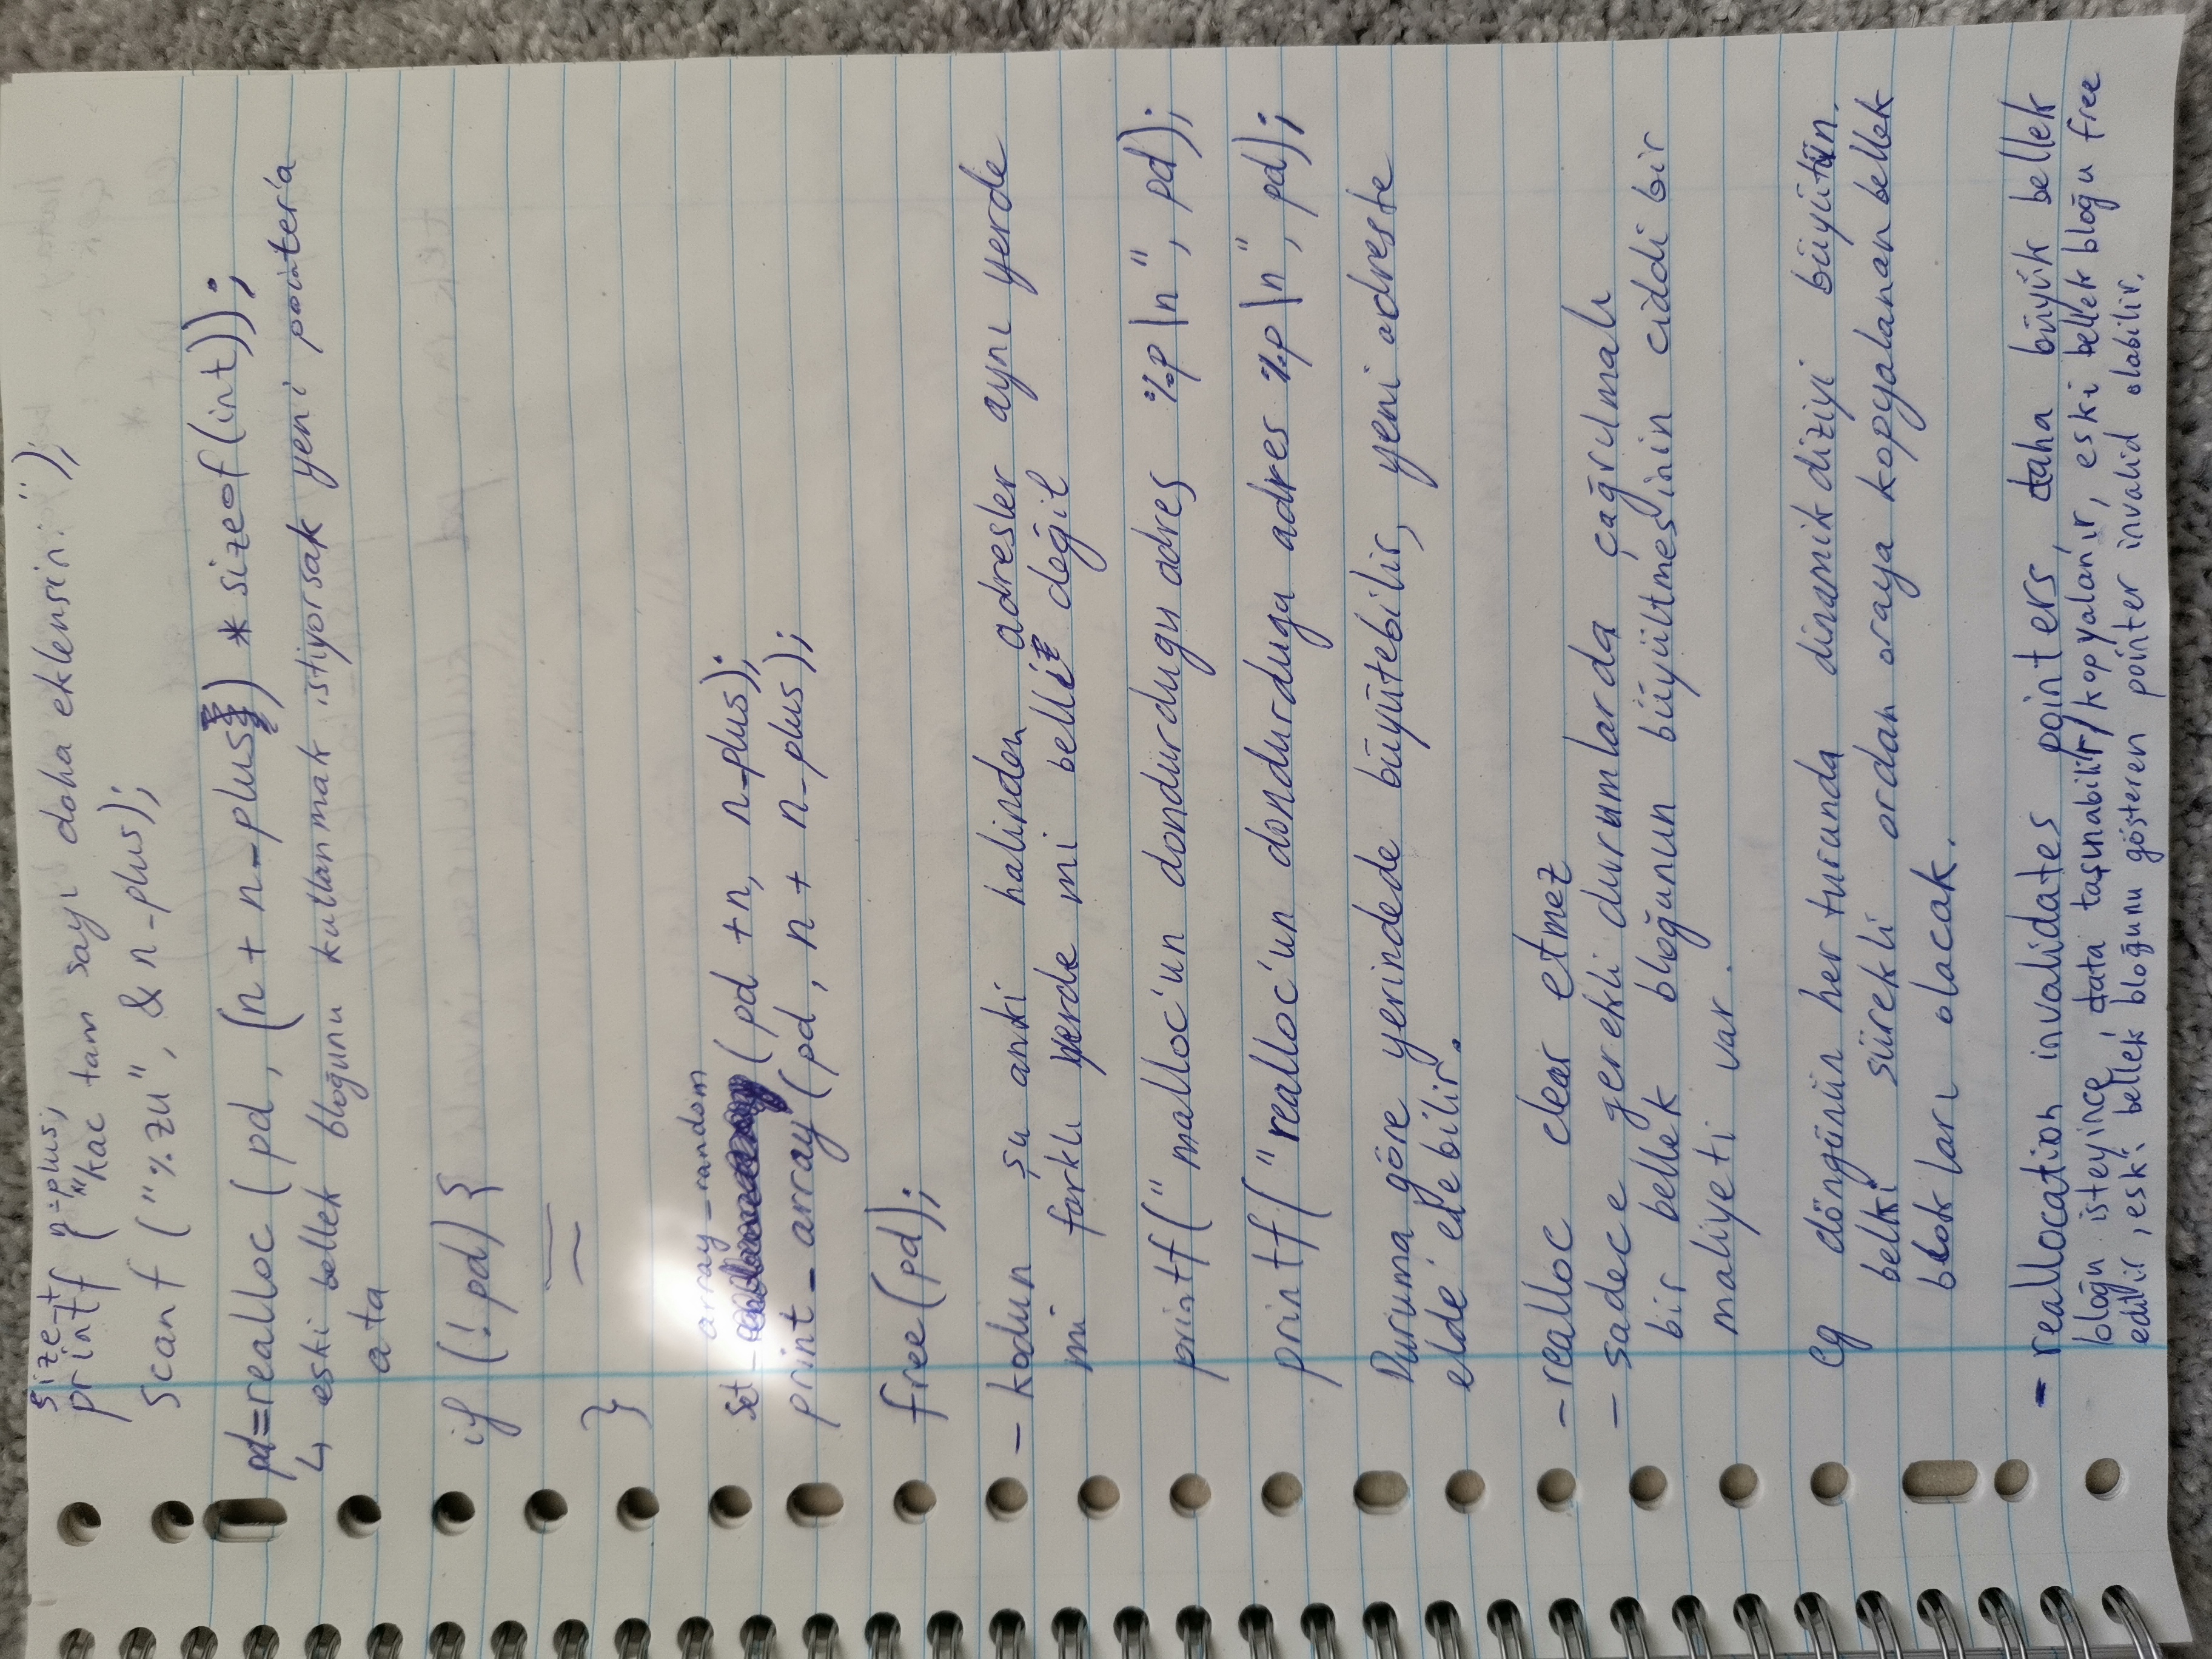 size_t n_plus;
printf ("kac tam sayı daha eklensin: ");
scanf ("%zu", &n_plus);
pd=realloc (pd, (n + n_plus) * sizeof(int));
↳ eski bellek bloğunu kullanmak istiyorsak yeni pointer'a
ata
if (!pd) {
}
array_random
set_ (pd +n, n_plus);
print_array (pd, n + n_plus);
free(pd);
- kodun şu anki halinden adresler aynı yerde
mi farklı yerde mi belli değil
printf("malloc'un dondurdugu adres %p\n", pd);
printf("realloc'un dondurdugu adres %p\n", pd);
Duruma göre yerindede büyütebilir, yeni adreste
elde edebilir.
- realloc clear etmez
- sadece gerekli durumlarda çağrılmalı
bir bellek bloğunun büyültmesinin ciddi bir
maliyeti var.
eg döngünün her turunda dinamik diziyi büyütün.
belki sürekli ordan oraya kopyalanan bellek
blokları olacak.
- reallocation invalidates pointers, daha büyük bellek
bloğu isteyince, data taşınabilir/kopyalanır, eski bellek bloğu free
edilir, eski bellek bloğunu gösteren pointer invalid olabilir.